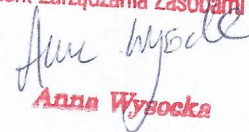 Zarządzania Zasobami
Anna Wysocka
Anna Wysocka